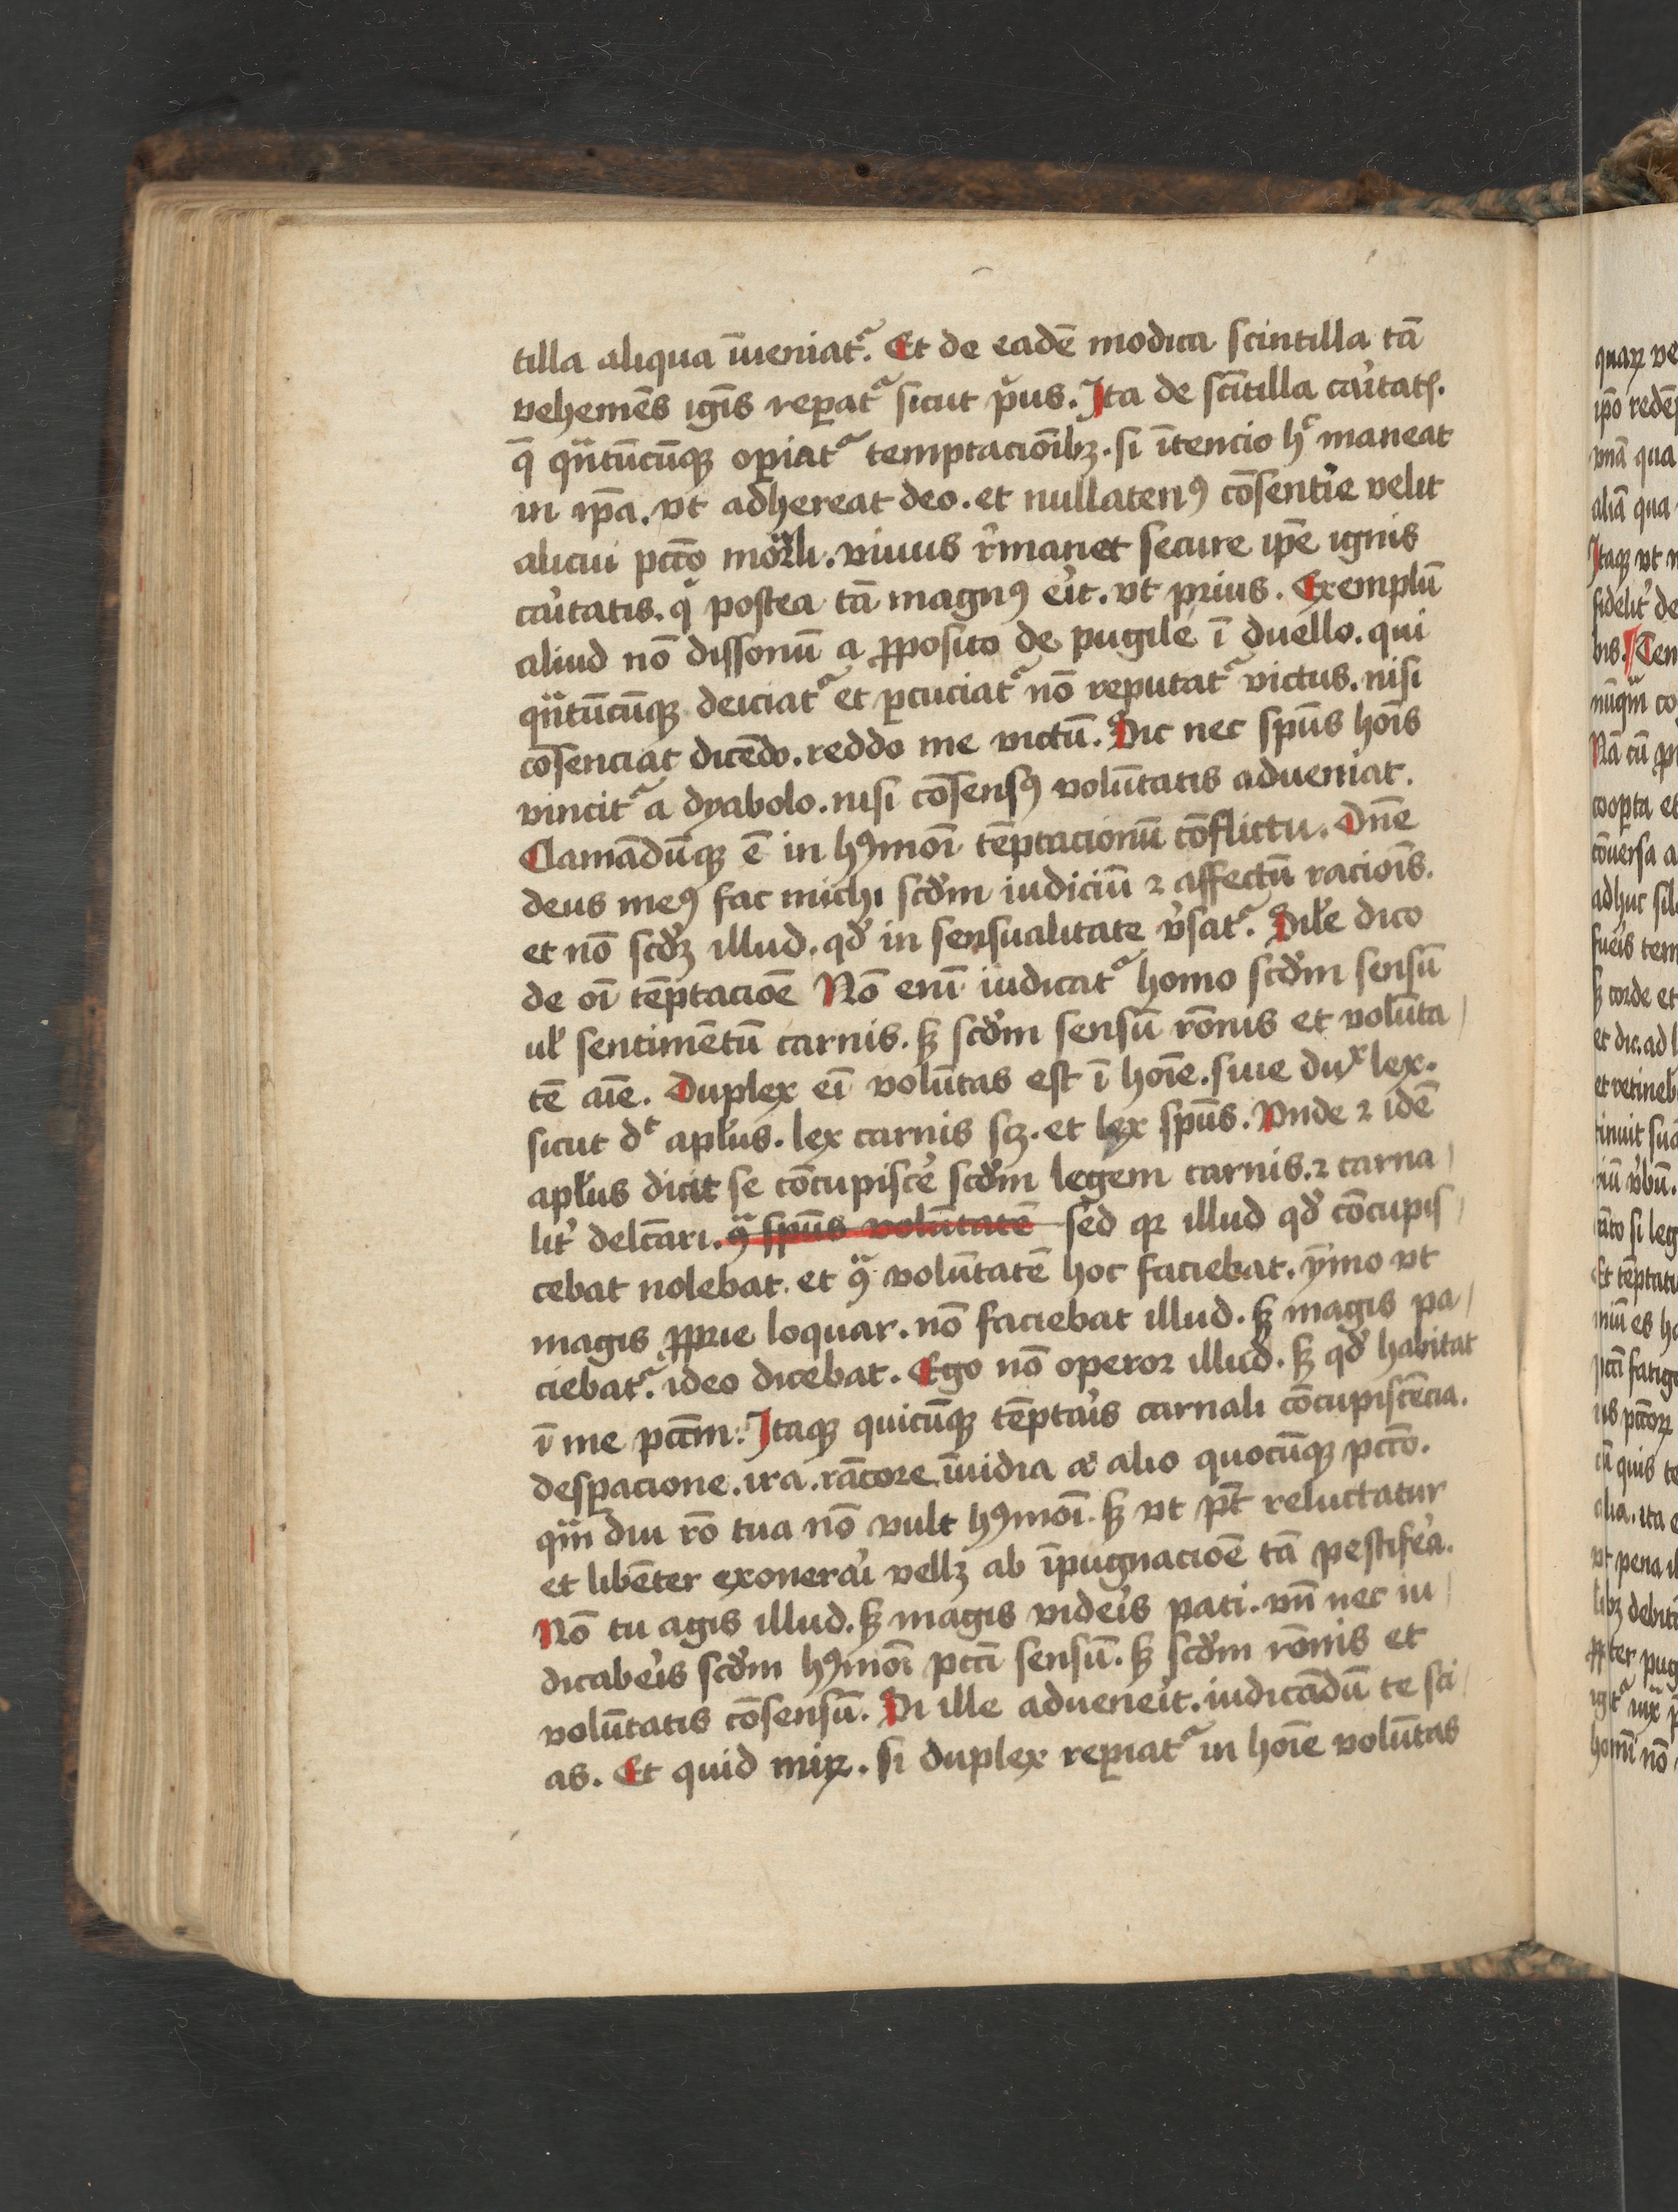 tilla aliqua īueniatᷣ. Et de eadē modica scintilla tā
vehemēs ignīs reꝑatᷣ sicut pͥus. Ita de scītilla caͥtatꝭ.
q̄ qᷓntūcūqꝫ oꝑiatᷣ temptacionībꝫ. si ītencio hͨ maneat
in ip̄a. vt adhereat deo. et nullatenꝰ cōsentir̓e velit
alicui pctō morᷓli. viuus rͤmanet secure ip̄e ignis
caͥtatis. qͥ postea tā magnꝰ er̓it. vt prius. Exemplū
aliud nō dissonū a ꝓposito de pugile ī duello. qui
qᷓntūcūqꝫ deiciatᷣ et ꝑcuciatᷣ nō reputatᷣ victus. nisi
cōsenciat dicēdo. reddo me victū. Sic nec spūs hoīs
vincitᷣ a dyabolo. nisi cōsensꝰ volūtatis adueniat.
Clamādūqꝫ ē in hꝰmoī tēptacionū cōflictu. Dn̄e
deus meꝰ fac michi scd̓m iudiciū ⁊ affectū racioīs.
et nō scd̓ꝫ illud. qd̓ in sensualitate v̓satᷣ. Sil̓e dico
de oī tēptacioē Nō enī iudicatᷣ homo scd̓m sensū
ul̓ sentimētū carnis. sꝫ scd̓m sensū rōnis et volūta
tē aīe. Duplex eī volūtas est ī hoīe. siue dux̓ lex.
sicut dͭ apl̓us. lex carnis sꝫ. et lex spūs. Vnde ⁊ idē
apl̓us dicit se cōcupiscer̓ scd̓m legem carnis. ⁊ carna
lit̓ delc̄ari. ꝯᷓ spūs volūtatē sed qꝛ illud qd̓ cōcupis
cebat nolebat. et ꝯᷓ volūtatē hoc faciebat. ȳmo vt
magis ꝓprie loquar. nō faciebat illud. sꝫ magis pa
ciebatᷣ. ideo dicebat. Ego nō operor illud. sꝫ qd̓ habitat
ī me pctm̄. Itaqꝫ quicūqꝫ tēptar̓is carnali cōcupiscēcia.
desꝑacione. ira. rācore. īuidia a͛ alio quocūqꝫ pctō.
qᷓm diu rō tua nō vult hꝰmoī. sꝫ vt pt̄ reluctatur
et libēter exonerar̓i vellꝫ ab īpugnacioē tā pestifer̓a.
Nō tu agis illud. sꝫ magis vider̓is pati. vn̄ nec iu
dicaber̓is scd̓m hꝰmoī pctī sensū. sꝫ scd̓m rōnis et
volūtatis cōsensū. Si ille aduener̓it. iudicādū te sci
as. Et quid miꝝ. si duplex reꝑiatᷣ in hoīe volūtas